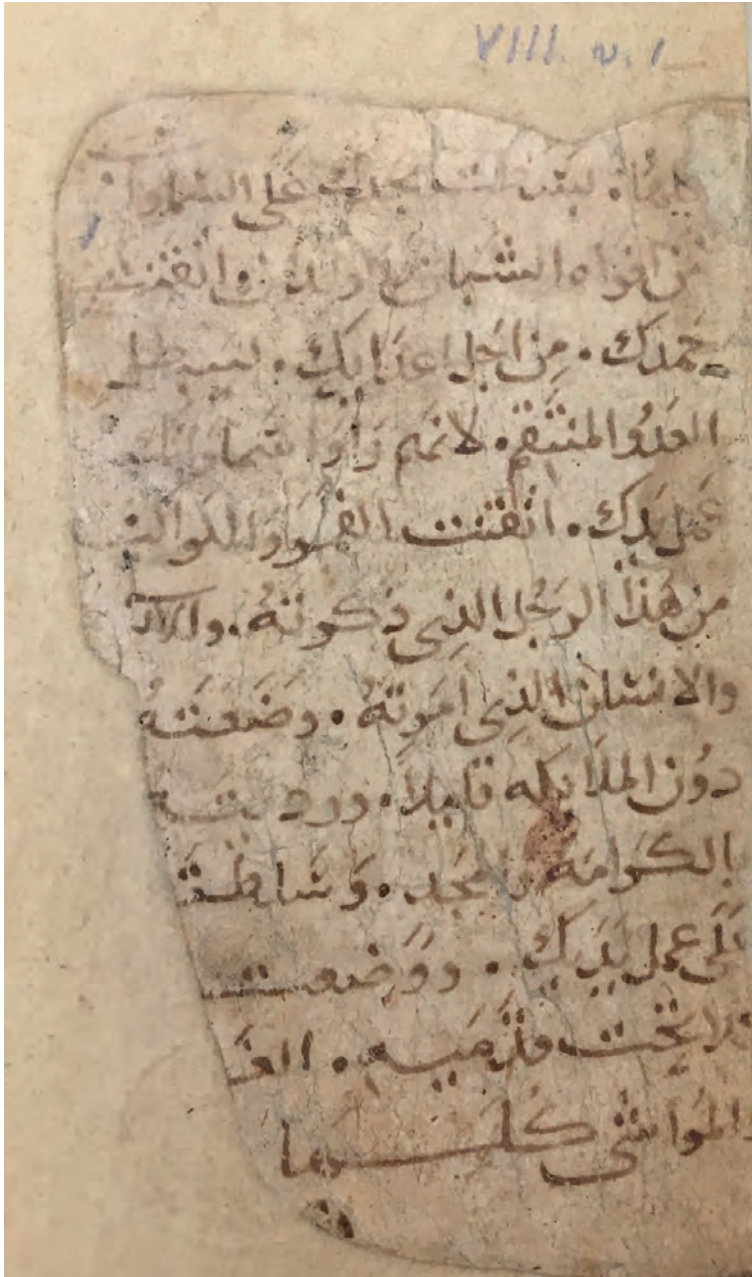 VIII. v. 1
كلها. على السماوات
من افواه الشبان واتقنت
حمدك. من اجل اعدايك. ليبطل
العدو المنتقم. لانهم راوا سماواتك
عمل يديك. اتقنت القمر والكواكب
من هذا الرجل الذي ذكرته. و
والانسان الذي امرته. وضعته
دون الملايكة قليلا. ورديته
بالكرامة والمجد. وسلطته
على عمل يديك. ووضعت
تحت قدميه. الغ
والمواشي كلها